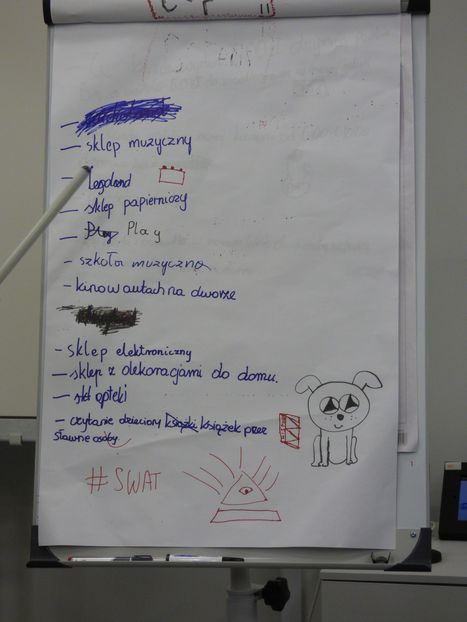 – sklep muzyczny
– Legoland
– sklep papierniczy
– Play
– szkoła muzyczna
– kino w autach na dworze
– sklep elektroniczny
– sklep z dekoracjami do domu.
– apteki
– czytanie dzieciom książki książek przez
sławne osoby
#SWAT